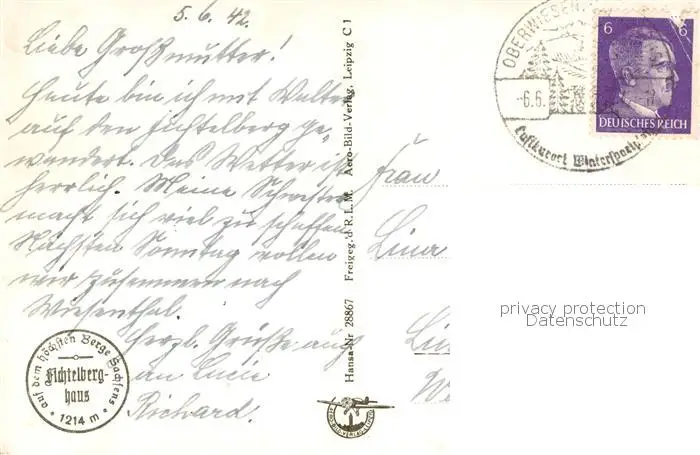 5.6.42.
Liebe Großmutter!
Heute bin ich mit Walter
auf den Fichtelberg ge-
wandert. Das Wetter ist
herrlich. Meine Schwester
macht sich viel zu schaffen
Nächsten Sonntag wollen
wir zusammen nach
Wiesenthal.
Herzl. Grüße auch
an Lucie
Richard.
auf dem höchsten Berge Sachsens
Fichtelberg-
haus
1214 m
Hansa-Nr 28867 Freigeg. d R.L.M. Aero-Bild-Verlag, Leipzig C 1
AERO-BILD-VERLAG-LEIPZIG
OBERWIESEN
-6.6.
Luftkurort Wintersportpl
6 6
DEUTSCHES REICH
Frau
Lina
privacy protection
Datenschutz